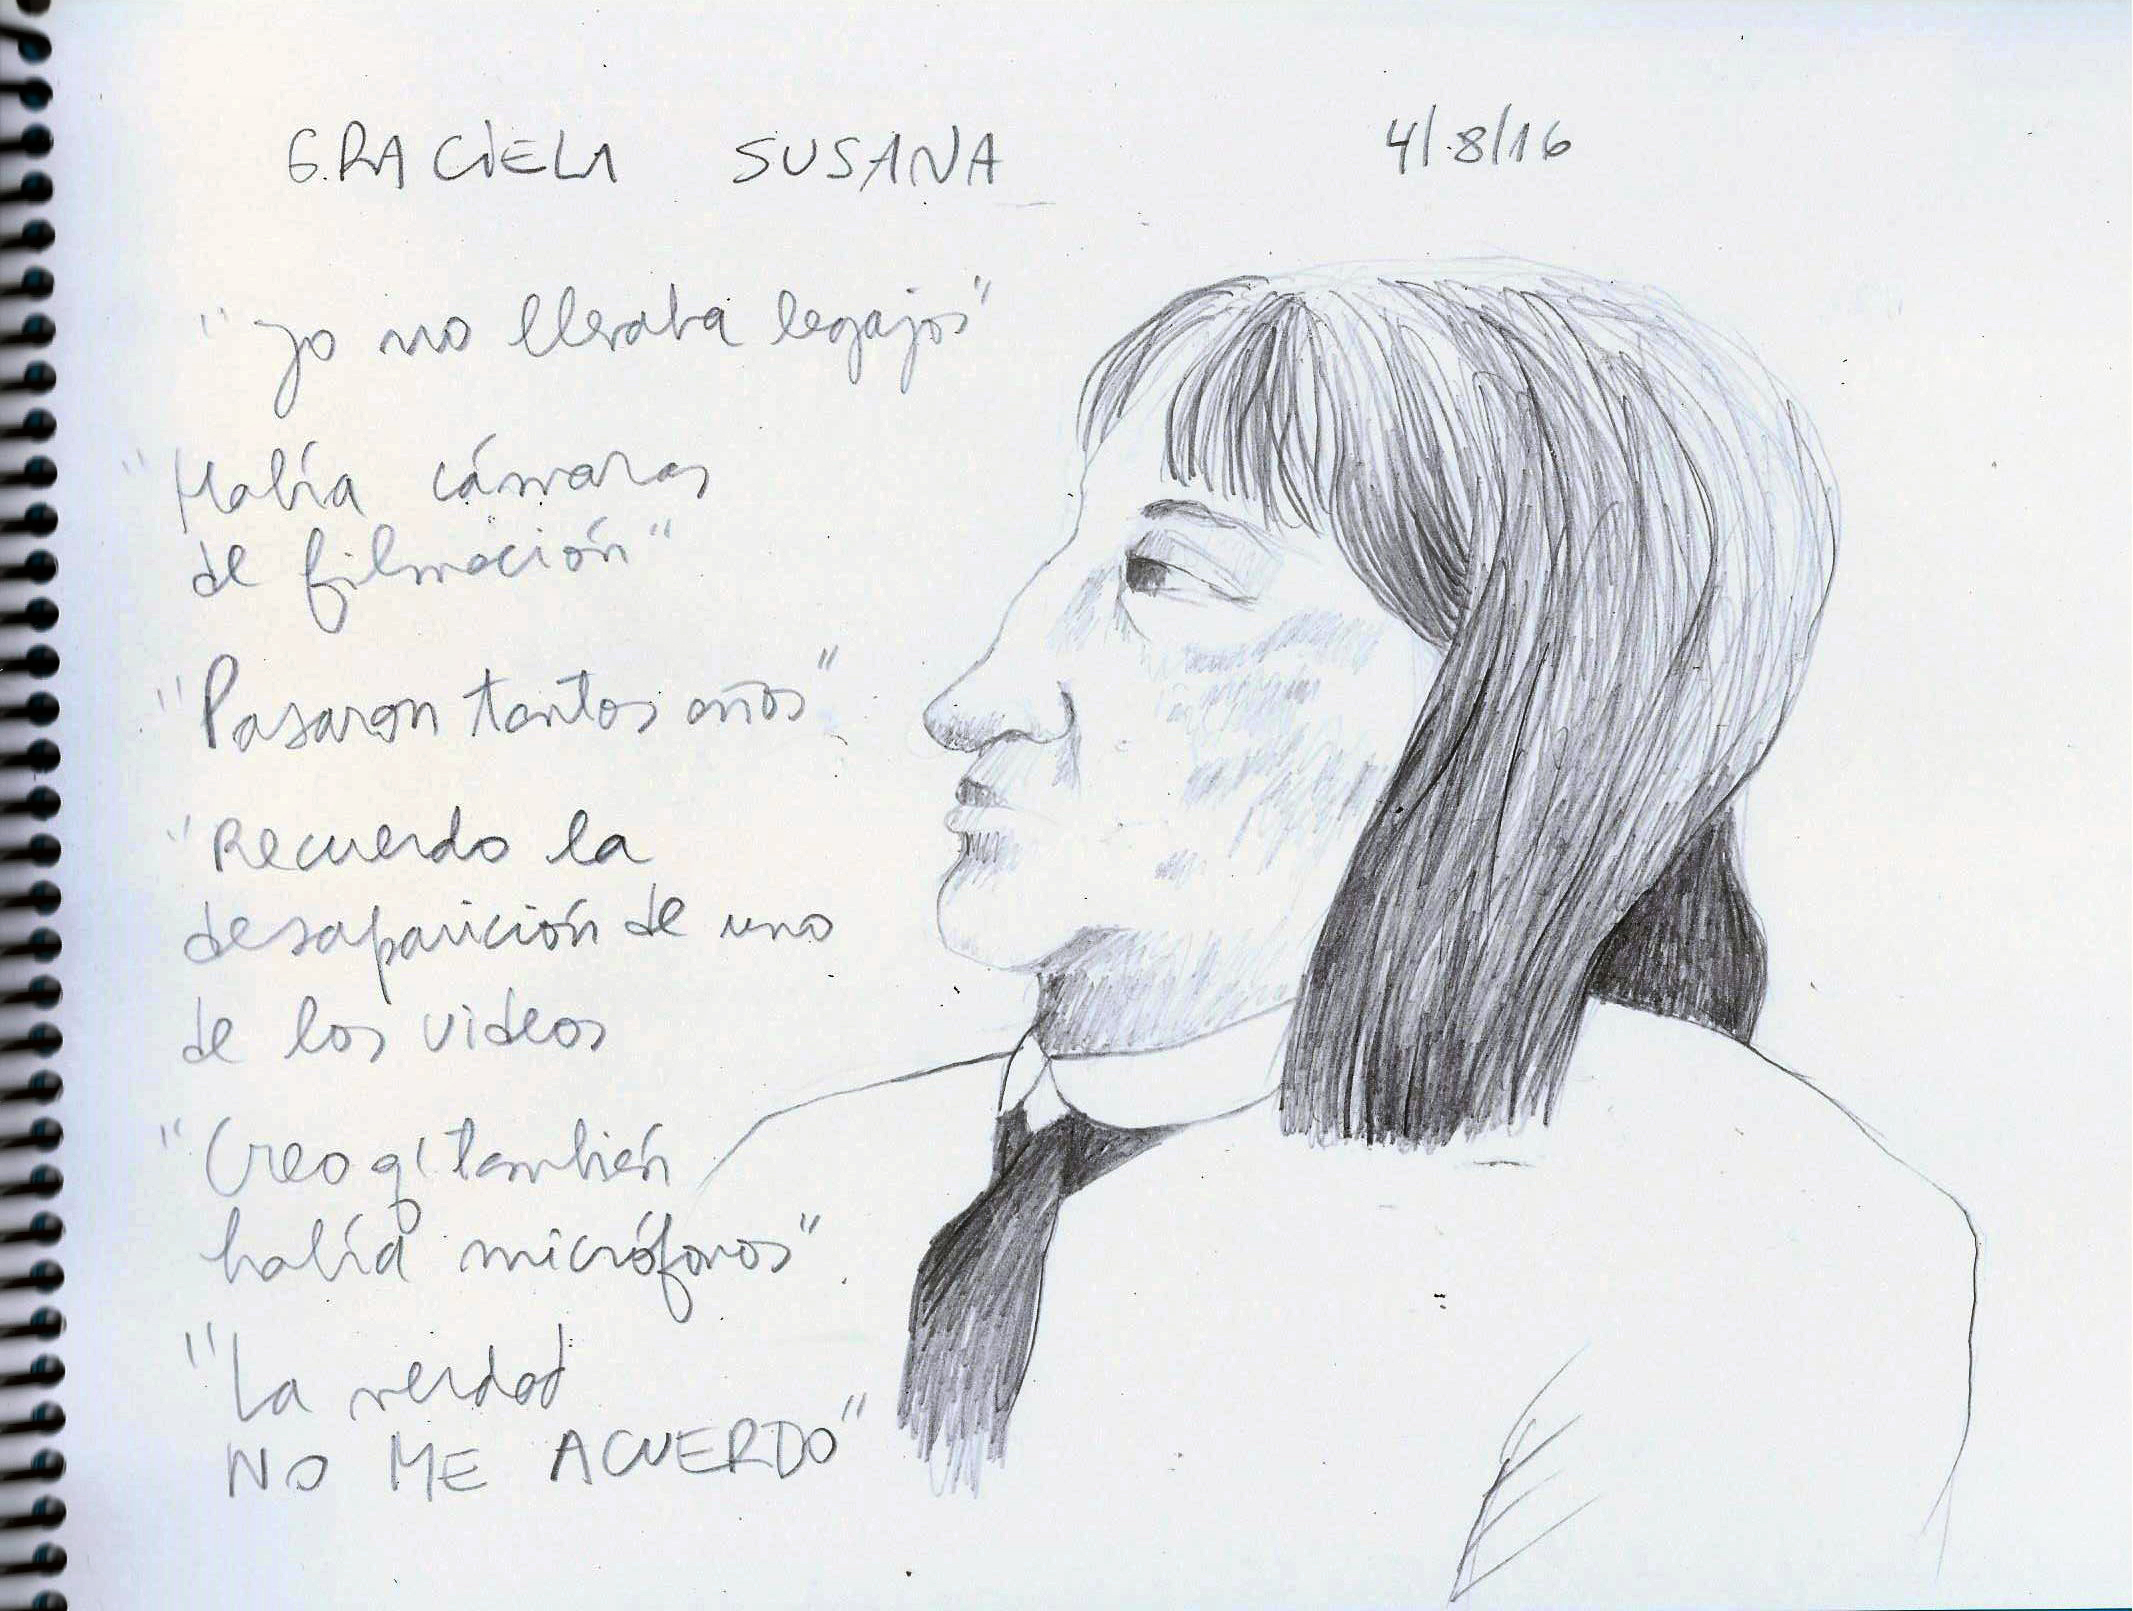 GRACIELA SUSANA 4/8/16
"yo no llevaba legajos"
"Había cámaras
de filmación"
"Pasaron tantos años"
"Recuerdo la
desaparición de uno
de los videos
"Creo q' también
había micrófonos".
"La verdad
NO ME ACUERDO"